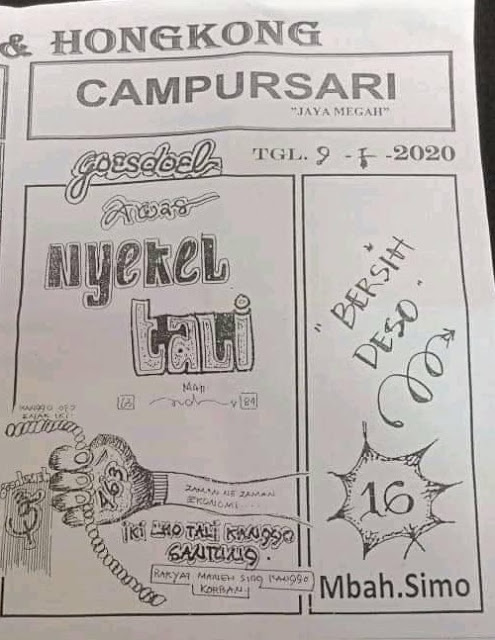 & HONGKONG
CAMPURSARI
"JAYA MEGAH"
TGL. 9 - I - -2020
Awas
Nyekel
tali
"BERSIH
DESO"
MATI
84
KANGGO OPO
ENAK IKI
463
ZAMAN NE ZAMAN
EKONOMI....
IKI ONO TALI KANGGO
GANTUNG.
RAKYAT MANEH SING KANGGO
KORBAN
16
Mbah.Simo